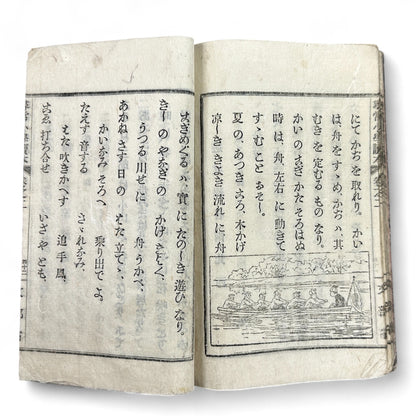 にてかぢを取れり。かい
は、舟をすゝめ、かぢハ、其
むきを定むるものなり。
かいのこぎかたそろはぬ
時は、舟、左右に動きて
すゝむことおそし。
夏のあつきころ、木かげ
凉しききよき流れに、舟
こぎめぐるハ、實にたのしき遊びなり。
きしのやなぎの　かげきよく、
うつる川せに　舟うかべ、
あかねさす日の　はた立てゝ、
かいなみそろへ　乘り出でよ。
たえず音する　さゞれなみ、
はた吹きかへす　追手風、
こゑ打ち合せ　いざやとも、